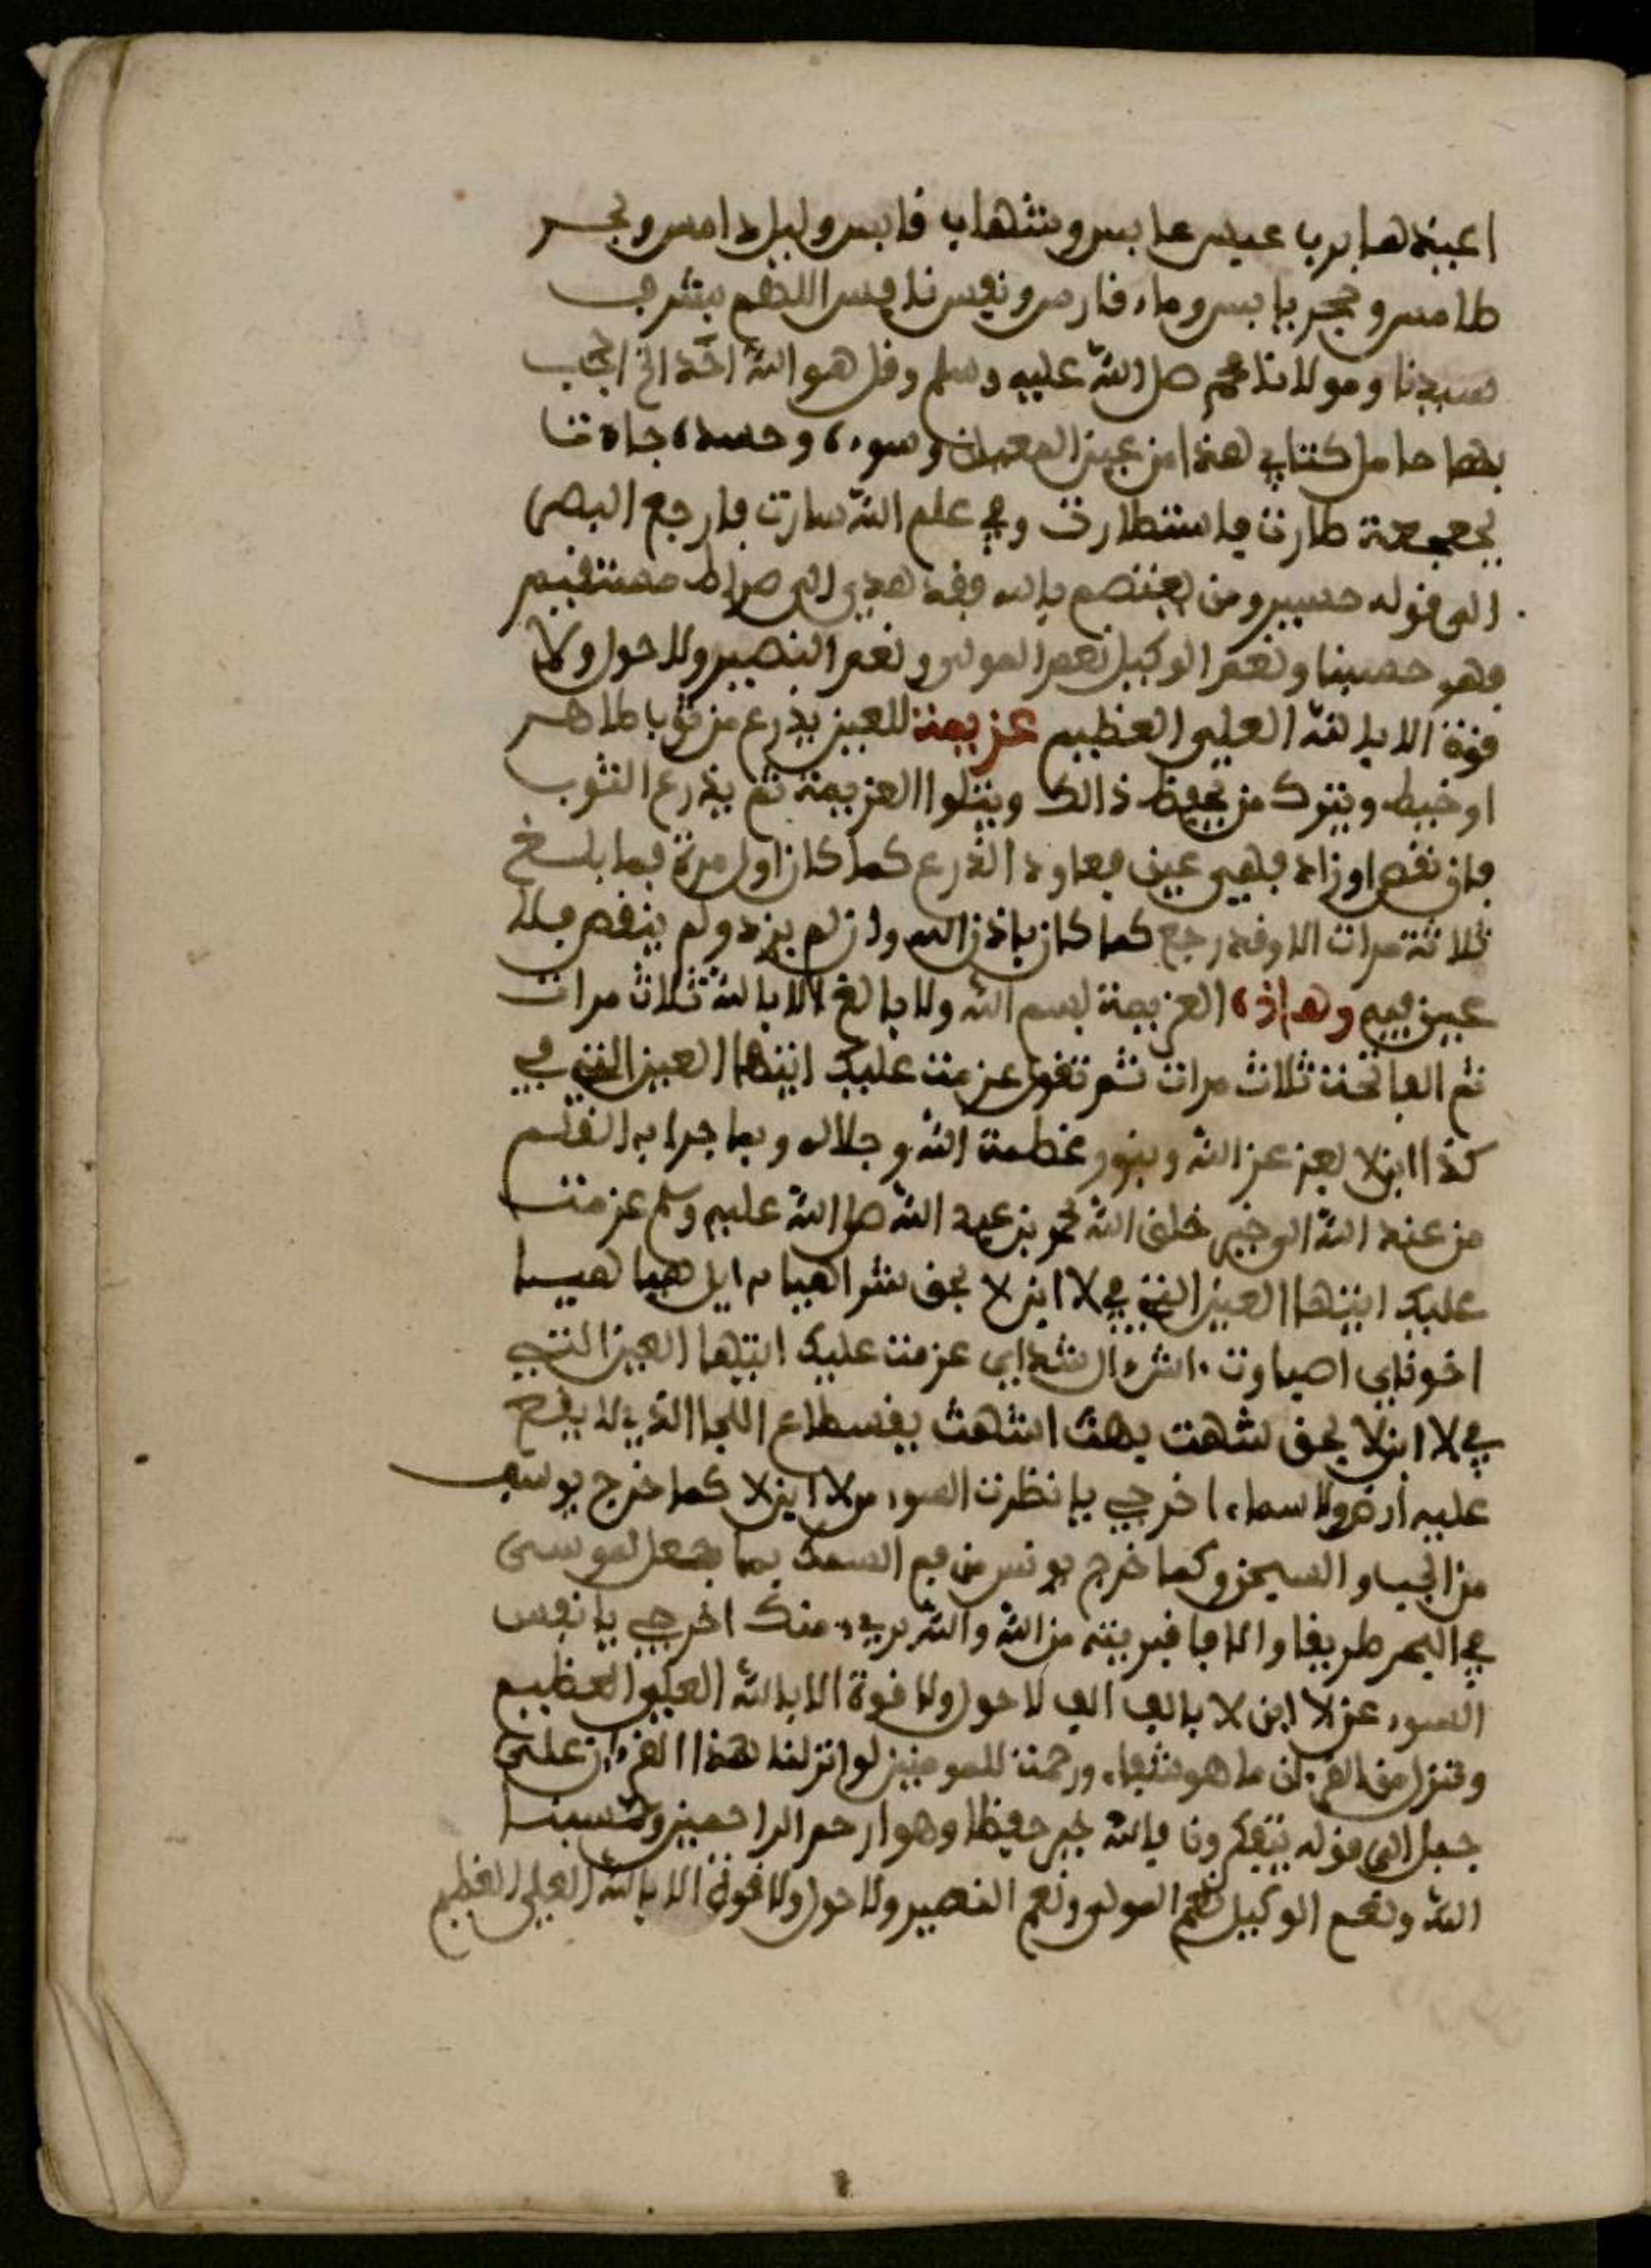 اعيذها برب عبس عابس وشهاب قابس وليل دامس وبحر
طامس وحجر يابس وماء فارس ونفيس نافس اللهم بشرف
سيدنا ومولانا محمد صلى الله عليه وسلم وقل هو الله احد الخ احجب
بهما حامل كتابي هذا من عين المعيان وسوء وحسده جاءتنا
طارت فاستطارت وفي علم الله سارت فارجع البصر
الى قوله حسير ومن يعتصم بالله فقد هدي الى صراط مستقيم
وهو حسبنا ونعم الوكيل نعم المولى ونعم النصير ولا حول ولا
قوة الا بالله العلي العظيم عزيمة للعين يذرع من ثوبا طاهر
او خيط ويترك من يحفظ ذالك ويتلوا العزيمة ثم يذرع الثوب
فان نقص او زاد فهي عين فعاود الذرع كما كان اول مرة فما بلغ
ثلاثة مرات الا وقد رجع كما كان باذن الله وان لم يزد ولم ينقص فلا
عين فيه وهاذه العزيمة بسم الله ولا بالغ الا بالله ثلاث مرات
ثم الفاتحة ثلاث مرات ثم تقول عزمت عليك ايتها العين التي في
كذا ابن لا بعز عز الله وبنور عظمة الله وجلاله وبما جرا به القلم
من عند الله الى خير خلق الله محمد بن عبد الله صلى الله عليه وسلم عزمت
عليك ايتها العين التي في لا ابن لا بحق شراهيا ايل هيا هيا
اخوناي اصباوت ال شداي عزمت عليك ايتها العين التي
في لا ابن لا بحق شهت بهت اشهت الذي لا يقع
عليه ارض ولا سماء اخرجي يا نظرت السوء من لا ابن لا كما خرج يوسف
من الجب والسجن وكما خرج يونس من فم السمك بما جعل لموسى
في البحر طريقا والا فبريئة من الله والله بريء منك اخرجي يا نفس
السوء عن لا ابن لا بالف الف لا حول ولا قوة الا بالله العلي العظيم
وننزل من القرءان ما هو شفاء ورحمة للمومنين لو انزلنا هذا القرءان على
جبل الى قوله يتفكرون فالله خير حفيظا وهو ارحم الراحمين وحسبنا
الله ونعم الوكيل نعم المولى ونعم النصير ولا حول ولا قوة الا بالله العلي العظيم